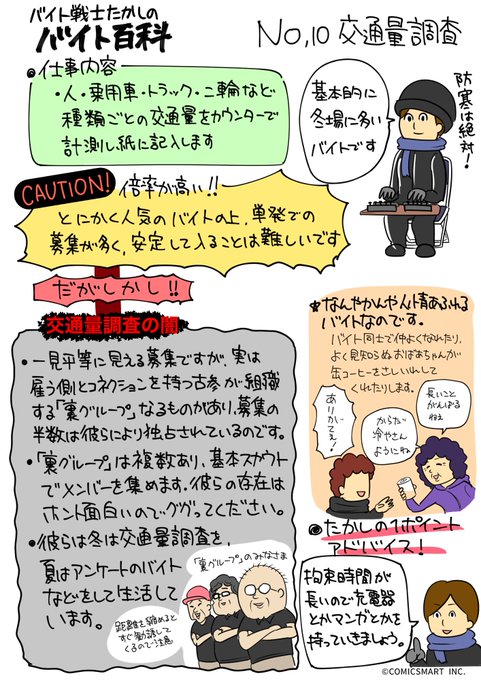 バイト戦士たかしの
バイト百科
No,10 交通量調査
仕事内容
・人・乗用車・トラック・二輪など
種類ごとの交通量をカウンターで
計測し紙に記入します
基本的に
冬場に多い
バイトです
防寒は絶対!
CAUTION! 倍率が高い!!
とにかく人気のバイトの上、単発での
募集が多く、安定して入ることは難しいです
だがしかし!!
交通量調査の闇
・一見平等に見える募集ですが、実は
雇う側とコネクションを持つ古参が組織
する「裏グループ」なるものがあり、募集の
半数は彼らにより独占されているのです。
・「裏グループ」は複数あり、基本スカウト
でメンバーを集めます。彼らの存在は
ホント面白いのでググってください。
・彼らは冬は交通量調査を、
夏はアンケートのバイト
などをして生活して
います。
「裏グループ」のみなさま
距離を縮めると
すぐ勧誘して
くるので注意
★なんやかんや人情あふれる
バイトなのです。
バイト同士で仲よくなれたり、
よく見知らぬおばあちゃんが
缶コーヒーをさしいれして
くれたりします。
ありがてぇ!
からだ
冷やさん
ようにね
長いこと
がんばるねえ
たかしの1ポイント
アドバイス!
拘束時間が
長いので充電器
とかマンガとかを
持っていきましょう。
©COMICSMART INC.